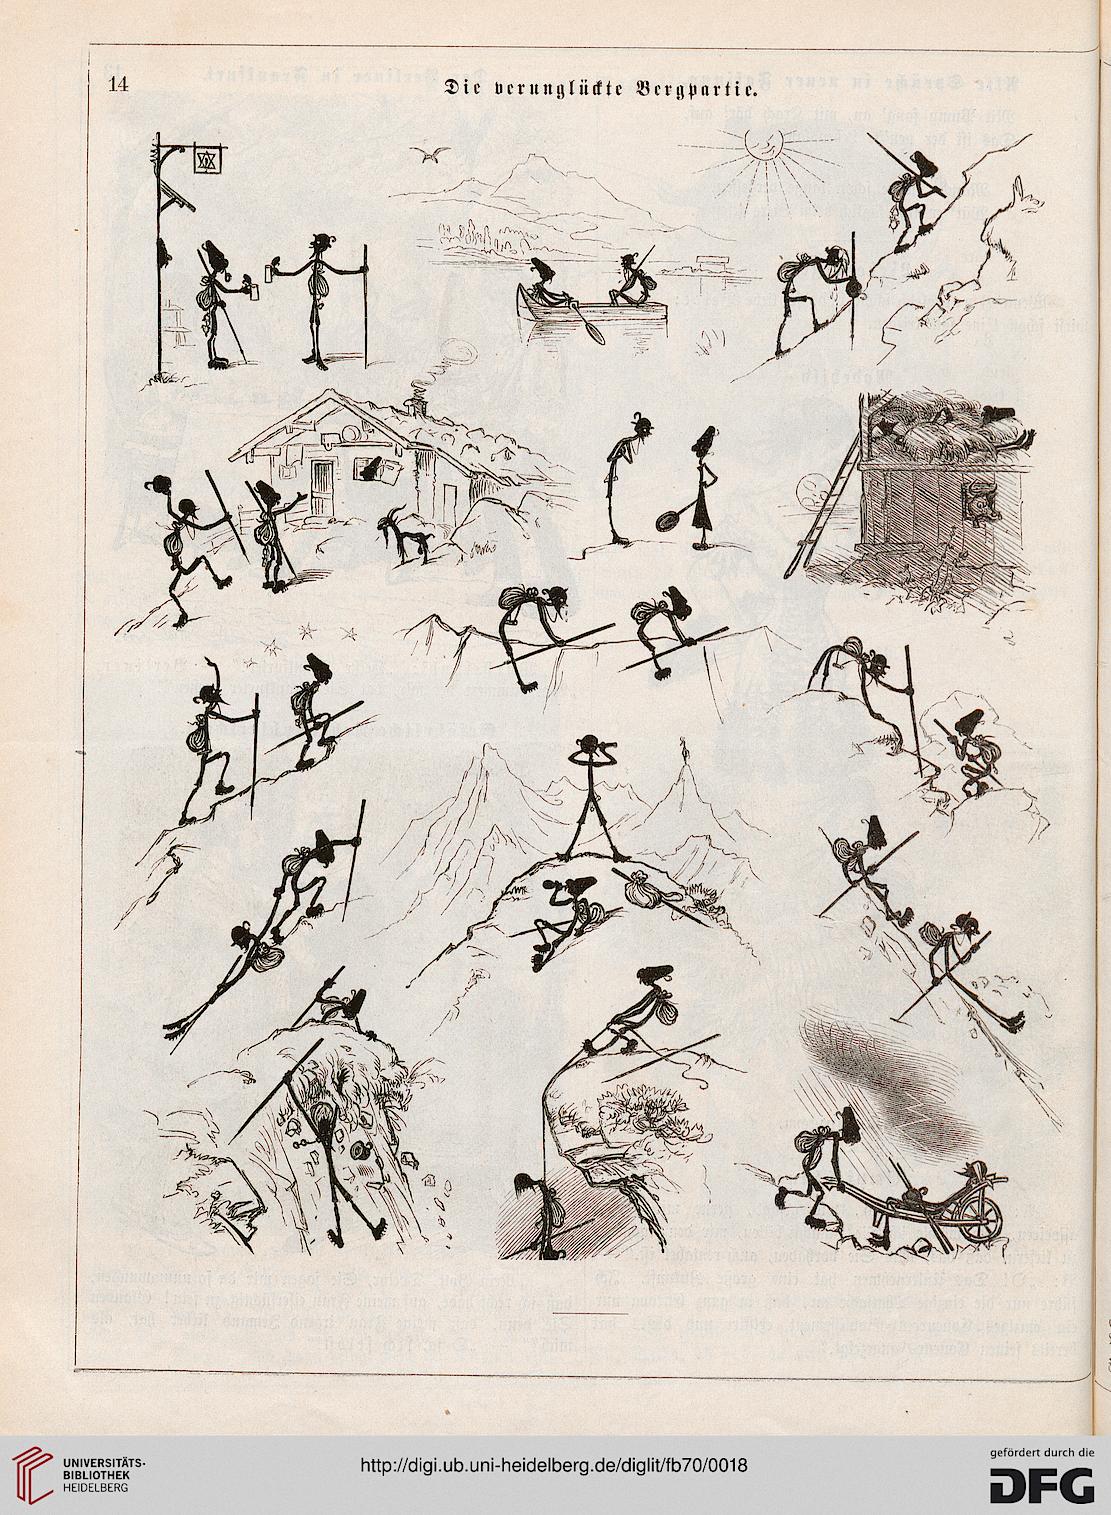 14
Die verunglückte Bergpartie.
UNIVERSITÄTS-
BIBLIOTHEK
HEIDELBERG
http://digi.ub.uni-heidelberg.de/diglit/fb70/0018
gefördert durch die
DFG